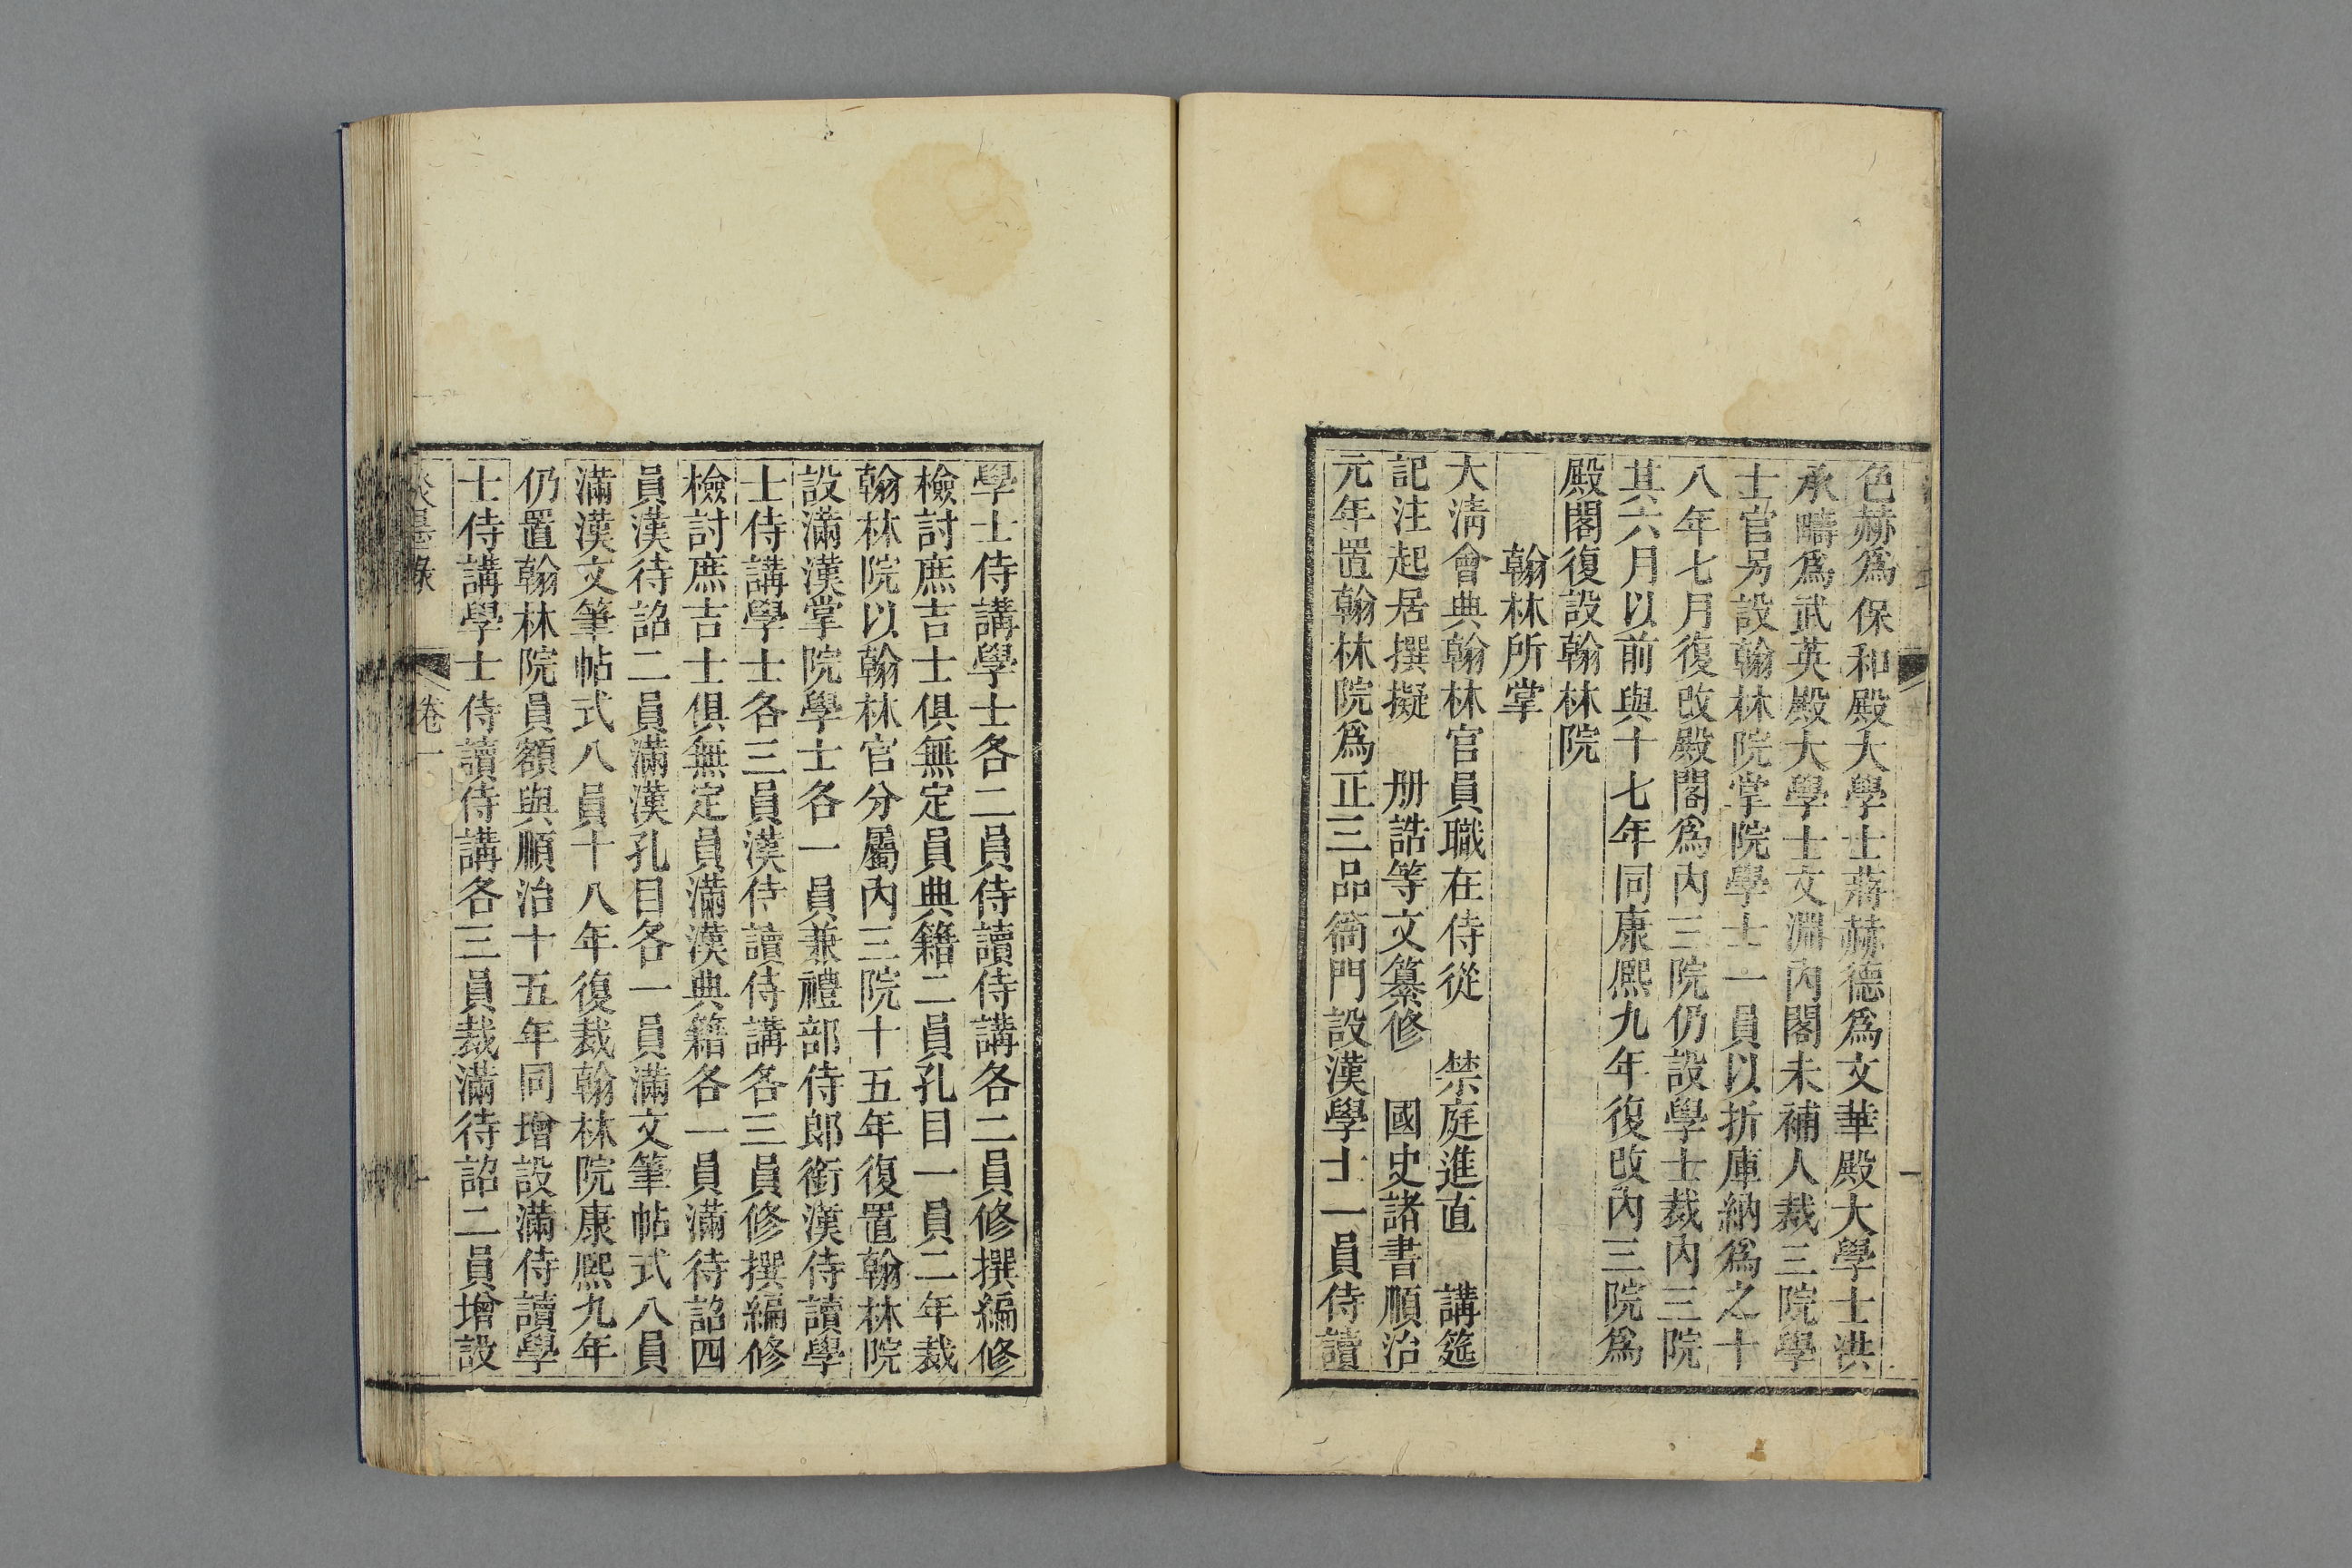 色赫爲保和殿大學士蔣赫德爲文華殿大學士洪
承疇爲武英殿大學士文淵內閣未補人裁三院學
士官另設翰林院掌院學士一員以折庫納爲之十
八年七月復改殿閣爲內三院仍設學士裁內三院
其六月以前與十七年同康熙九年復改內三院爲
殿閣復設翰林院
翰林所掌
大淸會典翰林官員職在侍從 禁庭進直 講筵
記注起居撰擬 册誥等文纂修 國史諸書順治
元年置翰林院爲正三品衙門設漢學士一員侍讀
學士侍講學士各二員侍讀侍講各二員修撰編修
檢討庶吉士俱無定員典籍二員孔目一員二年裁
翰林院以翰林官分屬內三院十五年復置翰林院
設滿漢掌院學士各一員兼禮部侍郎銜漢侍讀學
士侍講學士各三員漢侍讀侍講各三員修撰編修
檢討庶吉士俱無定員滿漢典籍各一員滿待詔四
員漢待詔二員滿漢孔目各一員滿文筆帖式八員
滿漢文筆帖式八員十八年復裁翰林院康熙九年
仍置翰林院員額與順治十五年同增設滿侍讀學
士侍講學士侍讀侍講各三員裁滿待詔二員增設
淡墨錄 卷一